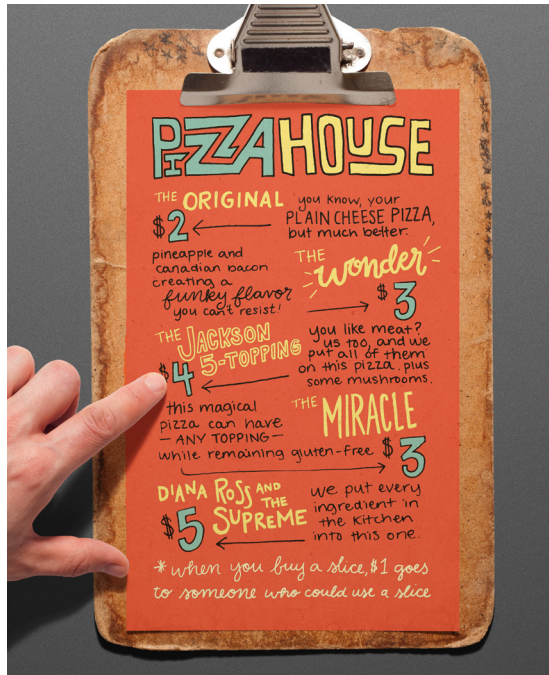 PIZZA HOUSE
THE ORIGINAL
$2
you know, your
PLAIN CHEESE PIZZA,
but much better.
THE
wonder
$3
pineapple and
canadian bacon
creating a
funky flavor
you can't resist!
THE JACKSON
5-TOPPING
$4
you like meat?
us too, and we
put all of them
on this pizza. plus
some mushrooms.
THE MIRACLE
$3
this magical
pizza can have
— ANY TOPPING —
while remaining gluten-free
DIANA ROSS AND
THE
SUPREME
$5
we put every
ingredient in
the kitchen
into this one.
*when you buy a slice, $1 goes
to someone who could use a slice